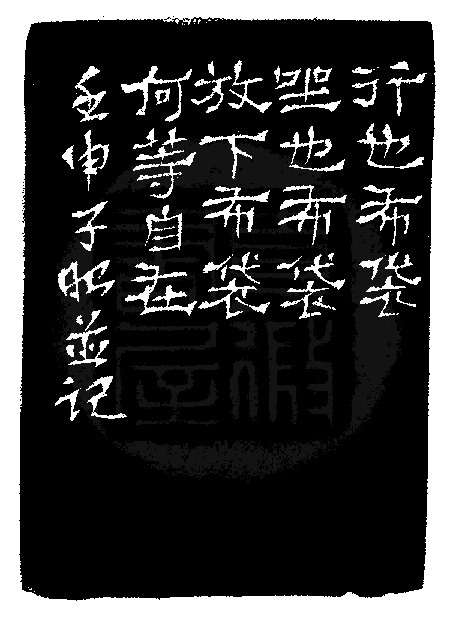 行也布袋
坐也布袋
放下布袋
何等自在
壬申子昭並记